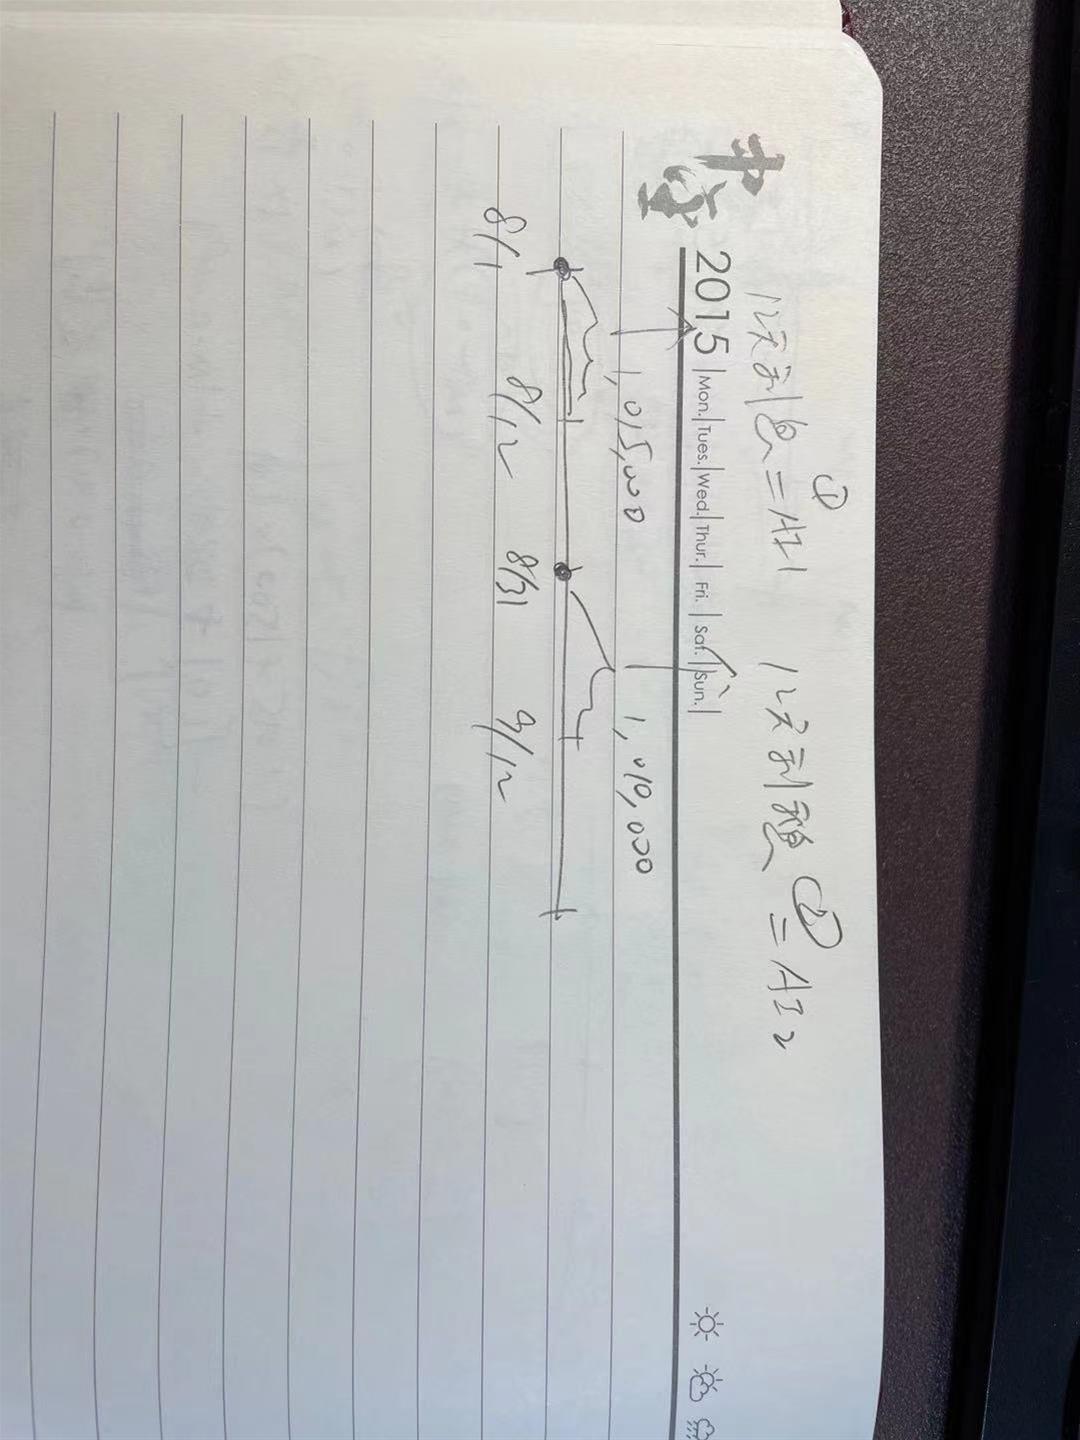 ① ②
12天利息=AI1 12天利息=AI2
2015 Mon.|Tues.|Wed.|Thur.| Fri. | Sat. |Sun.|
1,015,000 1,010,000
8/1 8/12 8/31 9/12